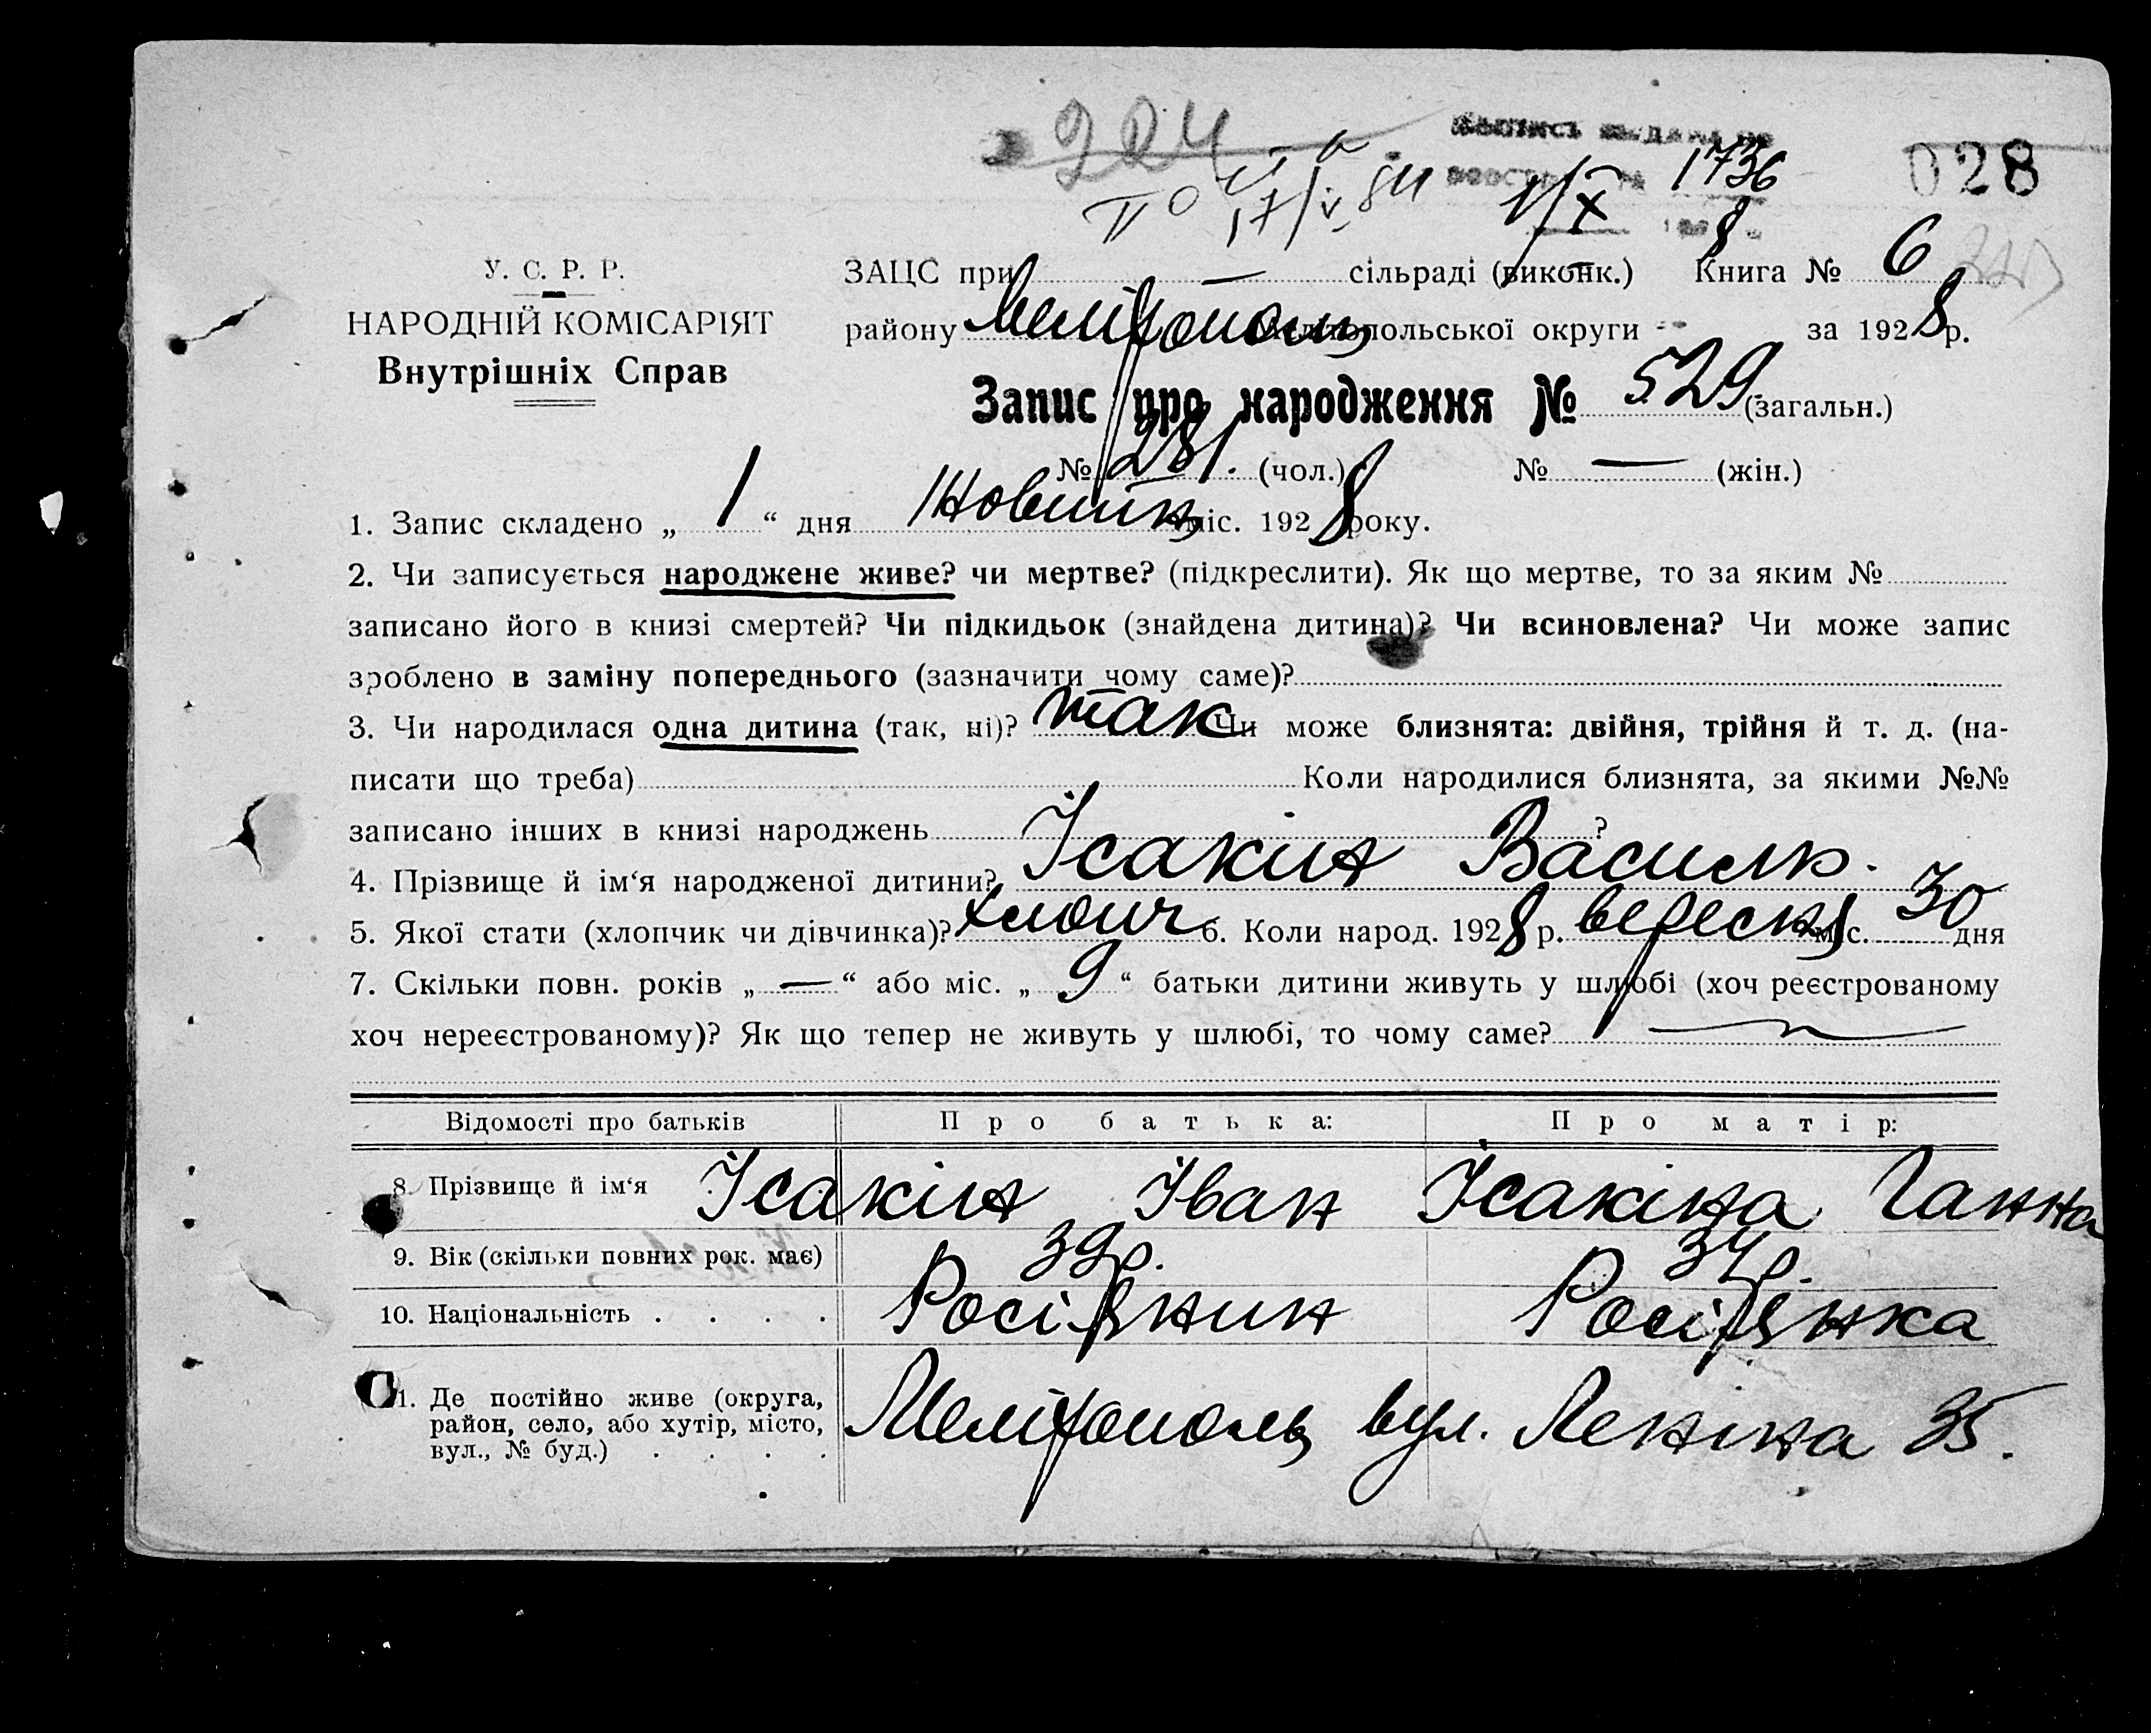 224
1736
028
1/X
8
У. С. Р. Р.
НАРОДНІЙ КОМІСАРІЯТ
Внутрішніх Справ
ЗАЦС при — сільраді (виконк.) Книга № 6
району Мелітополь Мелітопольської округи за 1928 р.
Запис про народження № 529 (загальн.)
№ 281. (чол.) № — (жін.)
1. Запис складено „ 1 “ дня Жовтня міс. 1928 року.
2. Чи записується народжене живе? чи мертве? (підкреслити). Як що мертве, то за яким №
записано його в книзі смертей? Чи підкидьок (знайдена дитина)? Чи всиновлена? Чи може запис
зроблено в заміну попереднього (зазначити чому саме)?
3. Чи народилася одна дитина (так, ні)? так Чи може близнята: двійня, трійня й т. д. (на-
писати що треба) Коли народилися близнята, за якими №№
записано інших в книзі народжень ?
4. Прізвище й ім‘я народженої дитини? Ісакін Василь.
5. Якої стати (хлопчик чи дівчинка)? хлопч 6. Коли народ. 1928 р. вересня міс. 30 дня
7. Скільки повн. років „ — “ або міс. „ 9 “ батьки дитини живуть у шлюбі (хоч реєстрованому
хоч нереєстрованому)? Як що тепер не живуть у шлюбі, то чому саме?
Відомості про батьків Про батька: Про матір:
8. Прізвище й ім‘я Ісакін Іван Ісакіна Ганна
9. Вік (скільки повних рок. має) 39 р. 34 р.
10. Національність . . . . Росіянин Росіянка
11. Де постійно живе (округа,
район, село, або хутір, місто,
вул., № буд.) . . . . Мелітополь вул. Леніна 35.